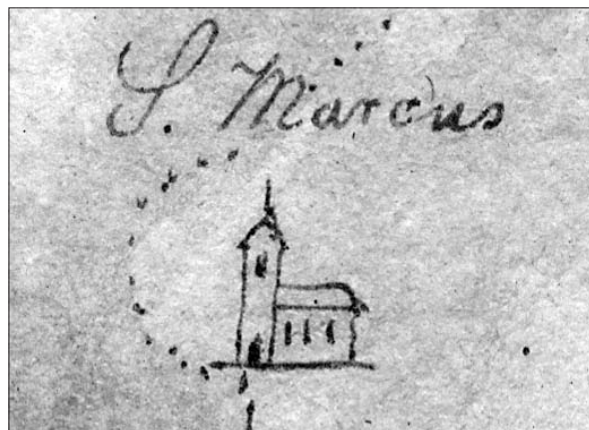 S. Marcus